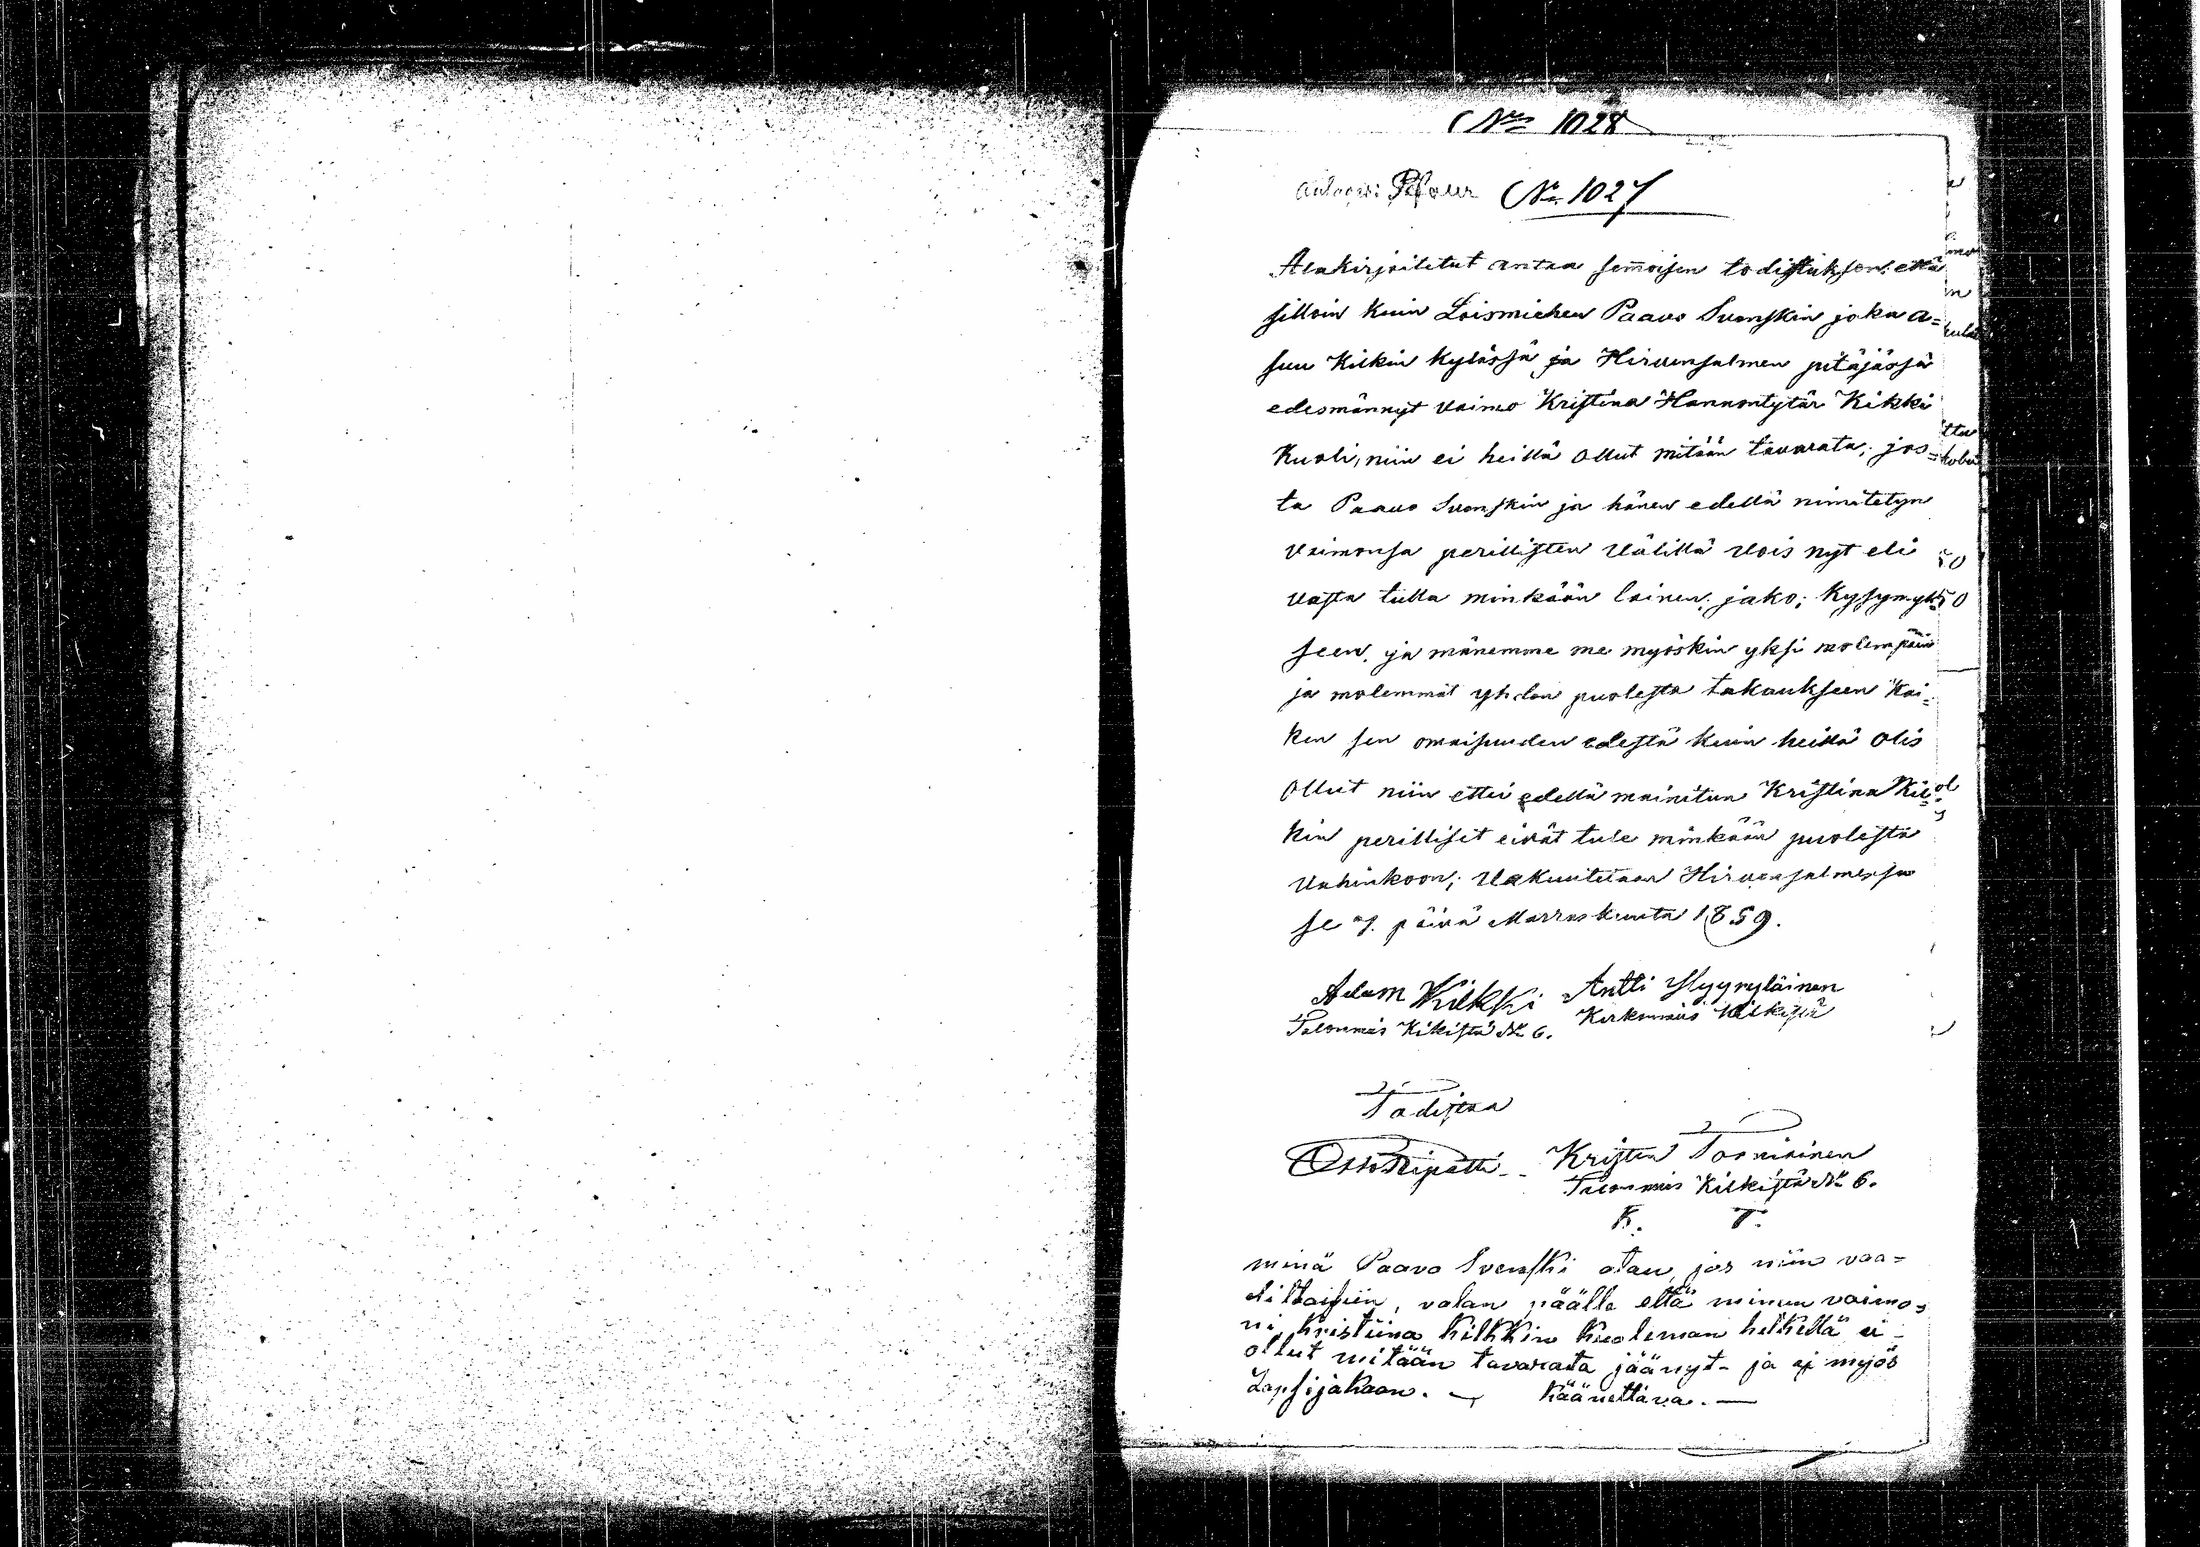 No 1028
No 1027
Alakirjoitetut antaa semoisen todistuksen että
silloin kuin Loismiehen Paavo Svenskin joka a=
suu Kilkin kylässä ja Hirvensalmen pitäjässä
edesmännyt vaimo Kristina Hannontytär Kikki
Kuoli, niin ei heillä ollut mitään tavarata, jos=
ta Paavo Svenskin ja hänen edellä nimitetyn
vaimonsa perillisten välillä vois nyt eli
vasta tulla minkään lainen jako, kysymyk=
seen, ja mänemme me myöskin yksi molempain
ja molemmat yhden puolesta takaukseen kai=
ken sen omaisuuden edestä kuin heillä olis
ollut niin ettei edellä mainitun Kristina Kil=
kin perilliset eivät tule minkään puolesta
vahinkoon; Vakuutetaan Hirvensalmessa
se 7. päivä Marraskuuta 1859.
Adam Kilkki Antti Hyyryläinen
Talonmies Kilkistä No 6. Kirkonmies Kilkistä
Todistaa
Otto Ripatti Kristen Toornainen
Talonmies Kilkistä No 6.
K. T.
minä Paavo Svenski otan, jos niin vaa=
dittaisiin, valan päälle että minun vaimo=
ni Kristiina Kilkkin kuoleman hetkellä ei
ollut mitään tavarata jäänyt ja ei myös
Lapsijakaan. Käänettävä.